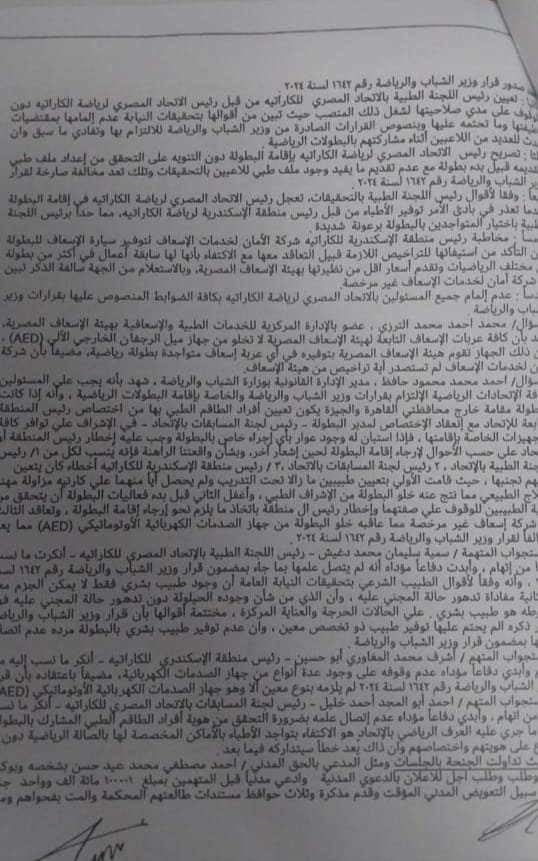 صدور قرار وزير الشباب والرياضة رقم ١٦٤٢ لسنة ٢٠٢٤ .
: تعيين رئيس اللجنة الطبية بالاتحاد المصري للكاراتيه من قبل رئيس الاتحاد المصري لرياضة الكاراتيه دون
وقوف على مدي صلاحيتها لشغل ذلك المنصب حيث تبين من أقوالها بتحقيقات النيابة عدم إلمامها بمقتضيات
وما تحتمه عليها وبنصوص القرارات الصادرة من وزير الشباب والرياضة للالتزام بها وتفادي ما سبق وأن
للعديد من اللاعبين أثناء مشاركتهم بالبطولات الرياضية .
: تصريح رئيس الاتحاد المصري لرياضة الكاراتيه بإقامة البطولة دون التنويه على التحقق من إعداد ملف طبي
قديمه قبيل بدء بطولة مع عدم تقديم ما يفيد وجود ملف طبي للاعبين بالتحقيقات وتلك تعد مخالفة صارخة لقرار
ير الشباب والرياضة رقم ١٦٤٢ لسنة ٢٠٢٤ .
: وفقا لأقوال رئيس اللجنة الطبية بالتحقيقات، تعجل رئيس الاتحاد المصري لرياضة الكاراتيه في إقامة البطولة
دما تعذر في بادئ الأمر توفير الأطباء من قبل رئيس منطقة الإسكندرية لرياضة الكاراتيه، مما حدا برئيس اللجنة
طبية باختيار المتواجدين بالبطولة برعونة شديدة .
: مخاطبة رئيس منطقة الإسكندرية للكاراتيه شركة الأمان لخدمات الإسعاف لتوفير سيارة الإسعاف للبطولة
ن التأكد من استيفائها للتراخيص اللازمة قبيل التعاقد معها مع الاكتفاء بأنها لها سابقة أعمال في أكثر من بطولة
مختلف الرياضيات وتقدم أسعار اقل من نظيرتها بهيئة الإسعاف المصرية، وبالاستعلام من الجهة سالفة الذكر تبين
شركة أمان لخدمات الإسعاف غير مرخصة .
: عدم إلمام جميع المسئولين بالاتحاد المصري لرياضة الكاراتيه بكافة الضوابط المنصوص عليها بقرارات وزير
شباب والرياضة .
سؤال/ محمد أحمد محمد الترزي ، عضو بالإدارة المركزية للخدمات الطبية والإسعافية بهيئة الإسعاف المصرية،
د بأن كافة عربات الإسعاف التابعة لهيئة الإسعاف المصرية لا تخلو من جهاز ميل الرجفان الخارجي الألي (AED) ،
ن ذلك الجهاز تقوم هيئة الإسعاف المصرية بتوفيره في أي عربة إسعاف متواجدة بطولة رياضية، مضيفا بأن شركة
ن لخدمات الإسعاف لم تستصدر أية تراخيص من هيئة الإسعاف.
سؤال/ احمد محمد محمود حافظ ، مدير الإدارة القانونية بوزارة الشباب والرياضة ، شهد بأنه يجب علي المسئولين
فة الإتحادات الرياضية الإلتزام بقرارات وزير الشباب والرياضة والخاصة بإقامة البطولات الرياضية ، وأنه إذا كانت
طولة مقامة خارج محافظتي القاهرة والجيزة يكون تعيين أفراد الطاقم الطبي بها من اختصاص رئيس المنطقة
ابعة للإتحاد مع إنعقاد الإختصاص لمدير البطولة – رئيس لجنة المسابقات بالإتحاد – في الإشراف علي توافر كافة
جهيزات الخاصة بإقامتها ، فإذا استبان له وجود عوار بأي إجراء خاص بالبطولة وجب عليه إخطار رئيس المنطقة أو
تحاد علي حسب الأحوال لإرجاء إقامة البطولة لحين إشعار أخر، وبشأن واقعتنا الراهنة فإنه ينسب لكل من ١/ رئيس
جنة الطبية بالإتحاد ، ٢ رئيس لجنة المسابقات بالاتحاد ،٣ / رئيس منطقة الإسكندرية للكاراتيه أخطاء كان يتعين
هم تجنبها ، حيث قامت الأولي بتعيين طبيبين ما زالا تحت التدريب ولم يحصل أيا منهما علي كارنيه مزاولة مهنة
لاج الطبيعي مما نتج عنه خلو البطولة من الإشراف الطبي ، وأغفل الثاني قبل بدء فعاليات البطولة أن يتحقق من
ية الطبيبين للوقوف علي صفتهما وإخطار رئيس ال منطقة باتخاذ ما يلزم نحو إرجاء إقامة البطولة ، وتعاقد الثالث
شركة إسعاف غير مرخصة مما عاقبه خلو البطولة من جهاز الصدمات الكهربائية الأوتوماتيكي (AED) مما يعد
الفا لقرار وزير الشباب والرياضة رقم ١٦٤٢ لسنة ٢٠٢٤ .
ستجواب المتهمة / سمية سليمان محمد دغيش – رئيس اللجنة الطبية بالإتحاد المصري للكاراتيه – أنكرت ما نسب
ا من إتهام ، وأبدت دفاعا مؤداه أنه لم يتصل علمها بما جاء بمضمون قرار وزير الشباب والرياضة رقم ١٦٤٢ لسنة
، وأنه وفقا لأقوال الطبيب الشرعي بتحقيقات النيابة العامة أن وجود طبيب بشري فقط لا يمكن الجزم معه
كانية مفاداة تدهور حالة المجني عليه ، وأن الذي من شأن وجوده الحيلولة دون تدهور حالة المجني عليه فور
وطه هو طبيب بشري . علي الحالات الحرجة والعناية المركزة ، مختتمة أقوالها بأن قرار وزير الشباب والرياضة
ذكره الم يحتم عليها توفير طبيب ذو تخصص معين ، وان عدم توفير طبيب بشري بالبطولة مرده عدم اتصال
ها بمضمون قرار وزير الشباب والرياضة .
ستجواب المتهم / أشرف محمد المغاوري أبو حسين – رئيس منطقة الإسكندري للكاراتيه – أنكر ما نسب إليه من
م وأبدي دفاعا مؤداه عدم وقوفه على وجود عدة أنواع من جهاز الصدمات الكهربائية، مضيفا باعتقاده بأن قرار
الشباب والرياضة رقم ١٦٤٢ لسنة ٢٠٢٤ لم يلزمه بنوع معين ألا وهو جهاز الصدمات الكهربائية الأوتوماتيكي (AED)
ستجواب المتهم / أحمد أبو المجد أحمد خليل – رئيس لجنة المسابقات بالاتحاد المصري للكاراتيه – أنكر ما نسب
من اتهام ، وأبدي دفاعا مؤداه عدم إتصال علمه بضرورة التحقق من هوية أفراد الطاقم الطبي المشارك بالبطولة
ما جري عليه العرف الرياضي بالإتحاد هو الاكتفاء بتواجد الأطباء بالأماكن المخصصة لها بالصالة الرياضية دون
ع علي هويتهم واختصاصهم وأن ذلك يعد خطأ سيتداركه فيما بعد .
ث تداولت الجنحة بالجلسات ومثل المدعي بالحق المدني / احمد مصطفي محمد عيد حسن بشخصه وبوكيل
وطلب وطلب اجل للاعلان بالدعوي المدنية وادعي مدنيا قبل المتهمين بمبلغ ١٠٠٠٠١ مائة الف وواحد جنيه
سبيل التعويض المدني المؤقت وقدم مذكرة وثلاث حوافظ مستندات طالعتهم المحكمة والمت بفحواهم